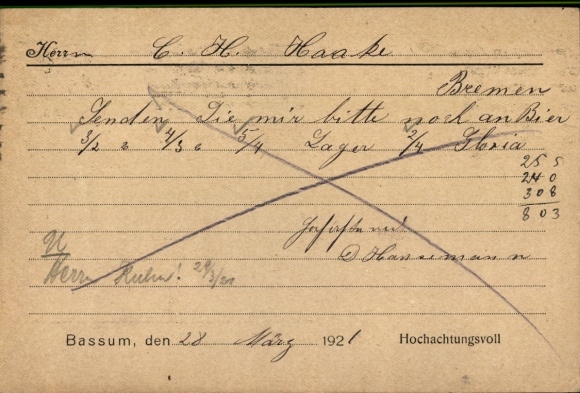 Herrn C. H. Haake
Bremen
Senden Sie mir bitte noch an Bier
3/2 " 4/3 " 5/4 Lager 2/4 Gloria
25 5
24 0
30 8
8 03
D Hanemann
Herrn
Bassum, den 28 März 1921 Hochachtungsvoll